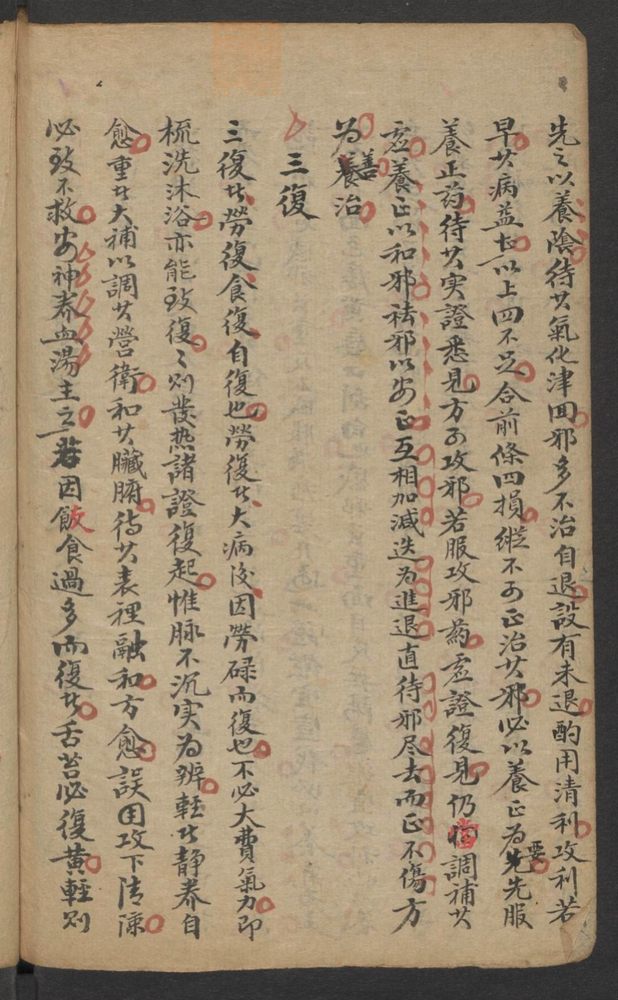 先之以養陰待其氣化津回邪多不治自退設有未退酌用清利攻利若
早其病益甚以上四不足合前條四損縱不可正治其邪必以養正為要先服
養正药待其实證悉見方可攻邪若服攻邪药虛證復見仍當調補其
虛養正以和邪祛邪以安正互相加減迭为進退直待邪尽去而正不傷方
为善治
三復
三復者勞復食復自復也勞復者大病後因勞碌而復也不必大費氣力即
梳洗沐浴亦能致復復則發热諸證復起惟脉不沉实为辨輕者静养自
愈重者大補以調其營衛和其臟腑待其表裡融和方愈誤用攻下清涼
必致不救安神养血湯主之若因飯食過多而復者舌苔必復黄輕則